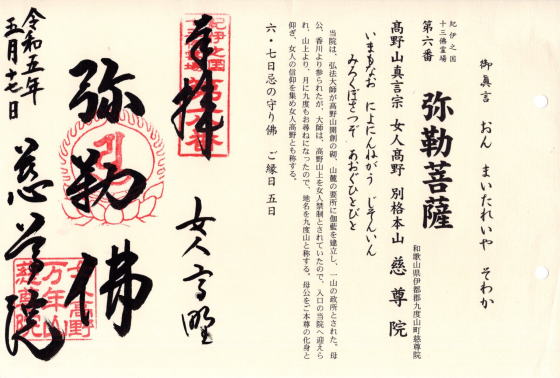 御真言　おん　まいたれいや　そわか
紀伊之国
十三佛霊場
第六番
弥勒菩薩
和歌山県伊都郡九度山町慈尊院
高野山真言宗　女人高野　別格本山　慈尊院
いまもなお　によにんねがう　じそんいん
みろくぼさつぞ　あおぐひとびと
当院は、弘法大師が高野山開創の砌、山麓の要所に伽藍を建立し、一山の政所とされた。母
公、香川より参られたが、大師は、高野山上を女人禁制とされていたので、入口の当院へ迎えら
れ、山上より、月に九度もお尋ねになったので、地名を九度山と称する。母公をご本尊の化身と
仰ぎ、女人の信仰を集め女人高野とも称する。
六・七日忌の守り佛　ご縁日　五日
奉拝
紀伊之国
第六番
女人高野
弥勒佛
慈尊院
令和五年
五月十七日
女人高野
万年山
慈尊院